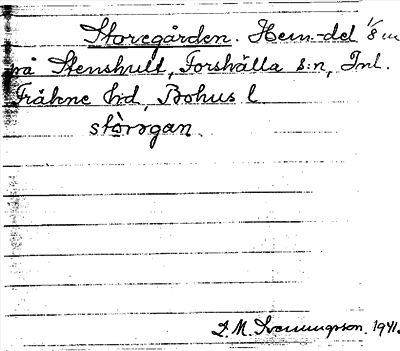 Storegården. Hem.-del 1/8 m
på Stenshult, Forshälla s:n, Inl.
Fräkne hd, Bohus l
stòrgan.
D. M. Svenungsson. 1941.